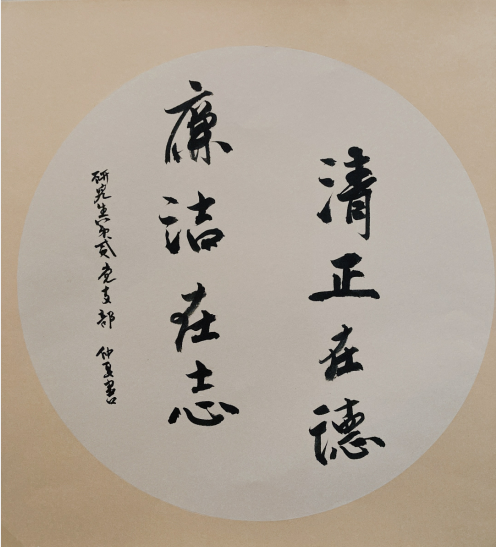 清正在德
廉洁在志
研究生第贰党支部 仲夏书